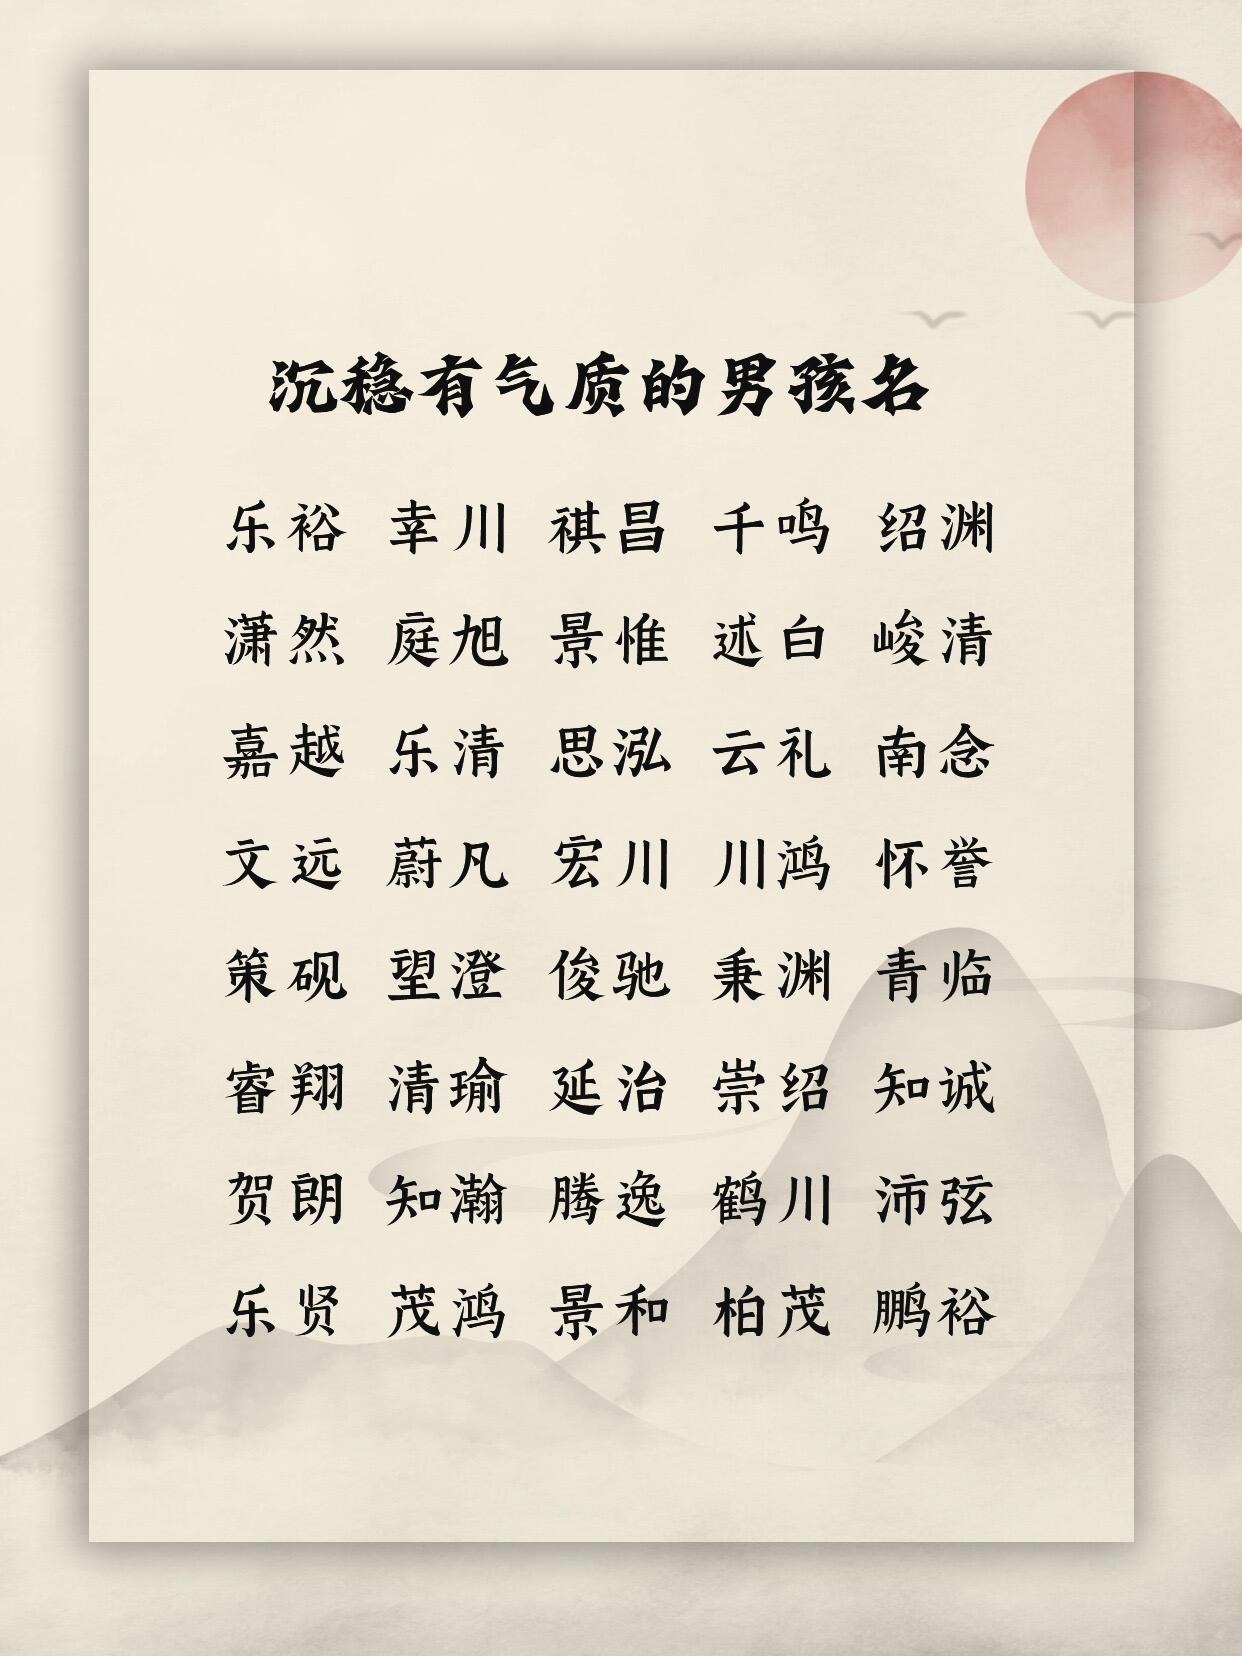 沉稳有气质的男孩名
乐裕 幸川 祺昌 千鸣 绍渊
潇然 庭旭 景惟 述白 峻清
嘉越 乐清 思泓 云礼 南念
文远 蔚凡 宏川 川鸿 怀誉
策砚 望澄 俊驰 秉渊 青临
睿翔 清瑜 延治 崇绍 知诚
贺朗 知瀚 腾逸 鹤川 沛弦
乐贤 茂鸿 景和 柏茂 鹏裕